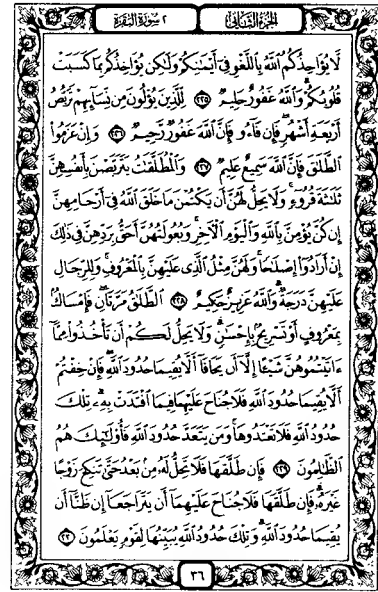 الجزء الثاني
٢ سورة البقرة
لَّا يُؤَاخِذُكُمُ ٱللَّهُ بِٱللَّغْوِ فِىٓ أَيْمَٰنِكُمْ وَلَٰكِن يُؤَاخِذُكُم بِمَا كَسَبَتْ
قُلُوبُكُمْ ۗ وَٱللَّهُ غَفُورٌ حَلِيمٌ ٢٢٥ لِّلَّذِينَ يُؤْلُونَ مِن نِّسَآئِهِمْ تَرَبُّصُ
أَرْبَعَةِ أَشْهُرٍ ۖ فَإِن فَآءُو فَإِنَّ ٱللَّهَ غَفُورٌ رَّحِيمٌ ٢٢٦ وَإِنْ عَزَمُوا۟
ٱلطَّلَٰقَ فَإِنَّ ٱللَّهَ سَمِيعٌ عَلِيمٌ ٢٢٧ وَٱلْمُطَلَّقَٰتُ يَتَرَبَّصْنَ بِأَنفُسِهِنَّ
ثَلَٰثَةَ قُرُوٓءٍ ۚ وَلَا يَحِلُّ لَهُنَّ أَن يَكْتُمْنَ مَا خَلَقَ ٱللَّهُ فِىٓ أَرْحَامِهِنَّ
إِن كُنَّ يُؤْمِنَّ بِٱللَّهِ وَٱلْيَوْمِ ٱلْءَاخِرِ ۚ وَبُعُولَتُهُنَّ أَحَقُّ بِرَدِّهِنَّ فِى ذَٰلِكَ
إِنْ أَرَادُوٓا۟ إِصْلَٰحًا ۚ وَلَهُنَّ مِثْلُ ٱلَّذِى عَلَيْهِنَّ بِٱلْمَعْرُوفِ ۚ وَلِلرِّجَالِ
عَلَيْهِنَّ دَرَجَةٌ ۗ وَٱللَّهُ عَزِيزٌ حَكِيمٌ ٢٢٨ ٱلطَّلَٰقُ مَرَّتَانِ ۖ فَإِمْسَاكٌۢ
بِمَعْرُوفٍ أَوْ تَسْرِيحٌۢ بِإِحْسَٰنٍ ۗ وَلَا يَحِلُّ لَكُمْ أَن تَأْخُذُوا۟ مِمَّآ
ءَاتَيْتُمُوهُنَّ شَيْـًٔا إِلَّآ أَن يَخَافَآ أَلَّا يُقِيمَا حُدُودَ ٱللَّهِ ۖ فَإِنْ خِفْتُمْ
أَلَّا يُقِيمَا حُدُودَ ٱللَّهِ فَلَا جُنَاحَ عَلَيْهِمَا فِيمَا ٱفْتَدَتْ بِهِۦ ۗ تِلْكَ
حُدُودُ ٱللَّهِ فَلَا تَعْتَدُوهَا ۚ وَمَن يَتَعَدَّ حُدُودَ ٱللَّهِ فَأُو۟لَٰٓئِكَ هُمُ
ٱلظَّٰلِمُونَ ٢٢٩ فَإِن طَلَّقَهَا فَلَا تَحِلُّ لَهُۥ مِنۢ بَعْدُ حَتَّىٰ تَنكِحَ زَوْجًا
غَيْرَهُۥ ۗ فَإِن طَلَّقَهَا فَلَا جُنَاحَ عَلَيْهِمَآ أَن يَتَرَاجَعَآ إِن ظَنَّآ أَن
يُقِيمَا حُدُودَ ٱللَّهِ ۗ وَتِلْكَ حُدُودُ ٱللَّهِ يُبَيِّنُهَا لِقَوْمٍ يَعْلَمُونَ ٢٣٠
٣٦